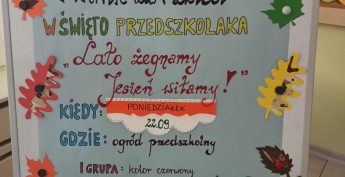 W ŚWIĘTO PRZEDSZKOLAKA
„Lato żegnamy
Jesień witamy!”
KIEDY: PONIEDZIAŁEK
22.09.
GDZIE: ogród przedszkolny
I GRUPA: kolor czerwony